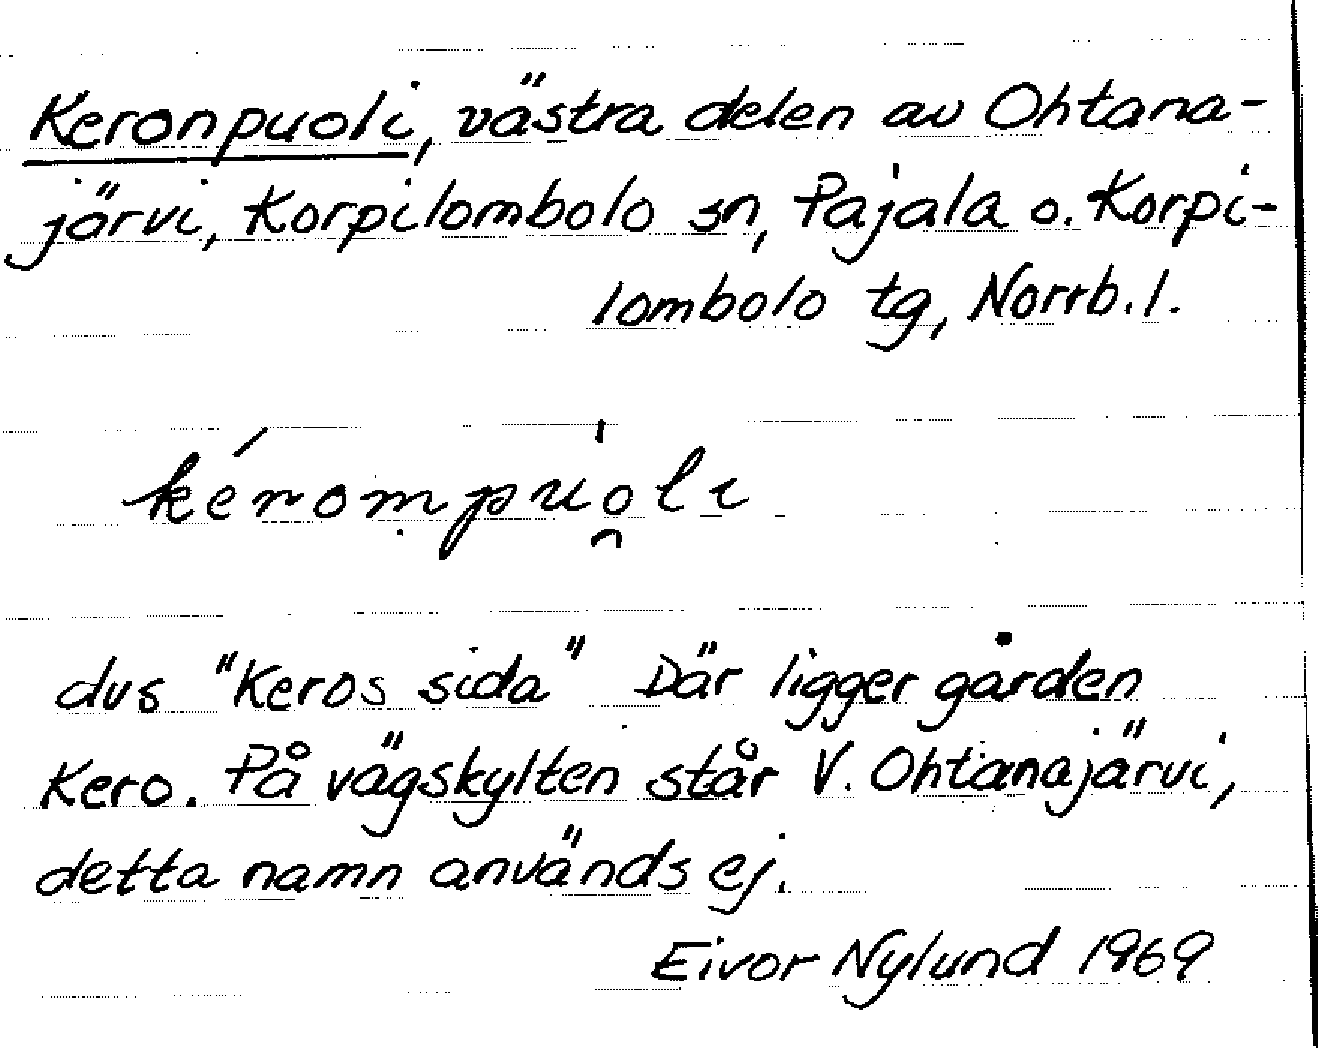 Keronpuoli, västra delen av Ohtana-
järvi, Korpilombolo sn, Pajala o. Korpi-
lombolo tg, Norrb. l.
kérompu̯oli
dvs "Keros sida" Där ligger gården
Kero. På vägskylten står V. Ohtanajärvi,
detta namn används ej.
Eivor Nylund 1969